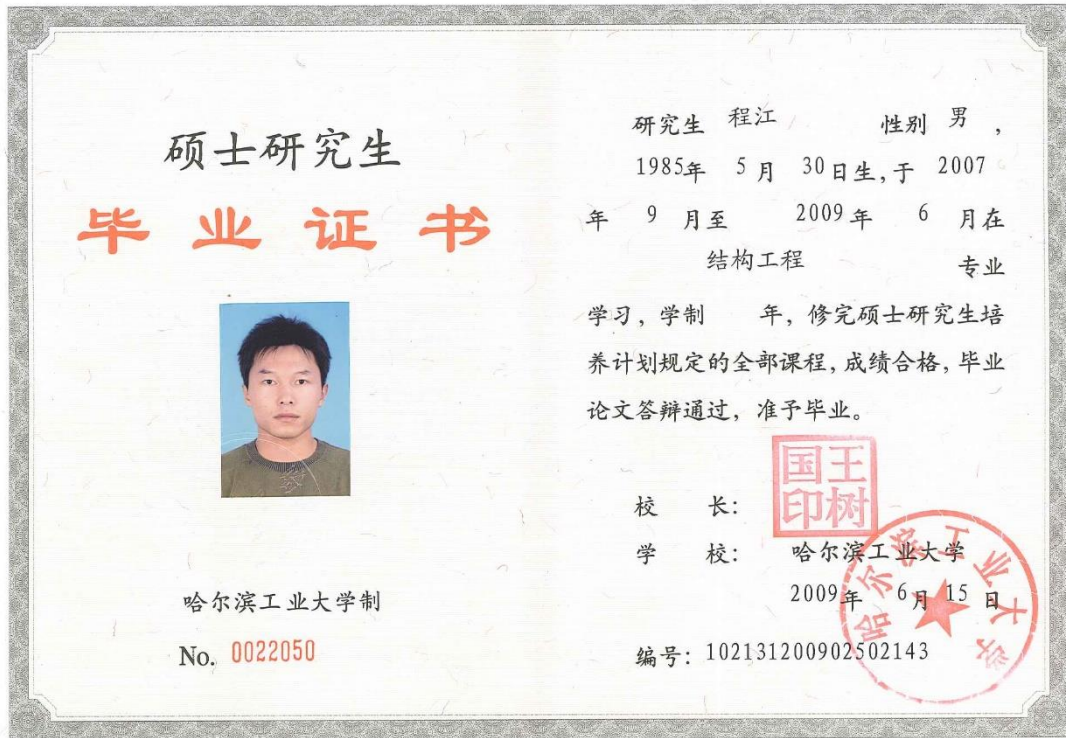 硕士研究生
毕业证书
哈尔滨工业大学制
No. 0022050
研究生 程江 性别 男，
1985年 5月 30日生,于 2007
年 9 月至 2009年 6 月在
结构工程 专业
学习，学制 年，修完硕士研究生培
养计划规定的全部课程,成绩合格,毕业
论文答辩通过，准予毕业。
国王
印树
校 长：
学 校： 哈尔滨工业大学
2009年 6月 15日
编号：102131200902502143
哈尔滨工业大学